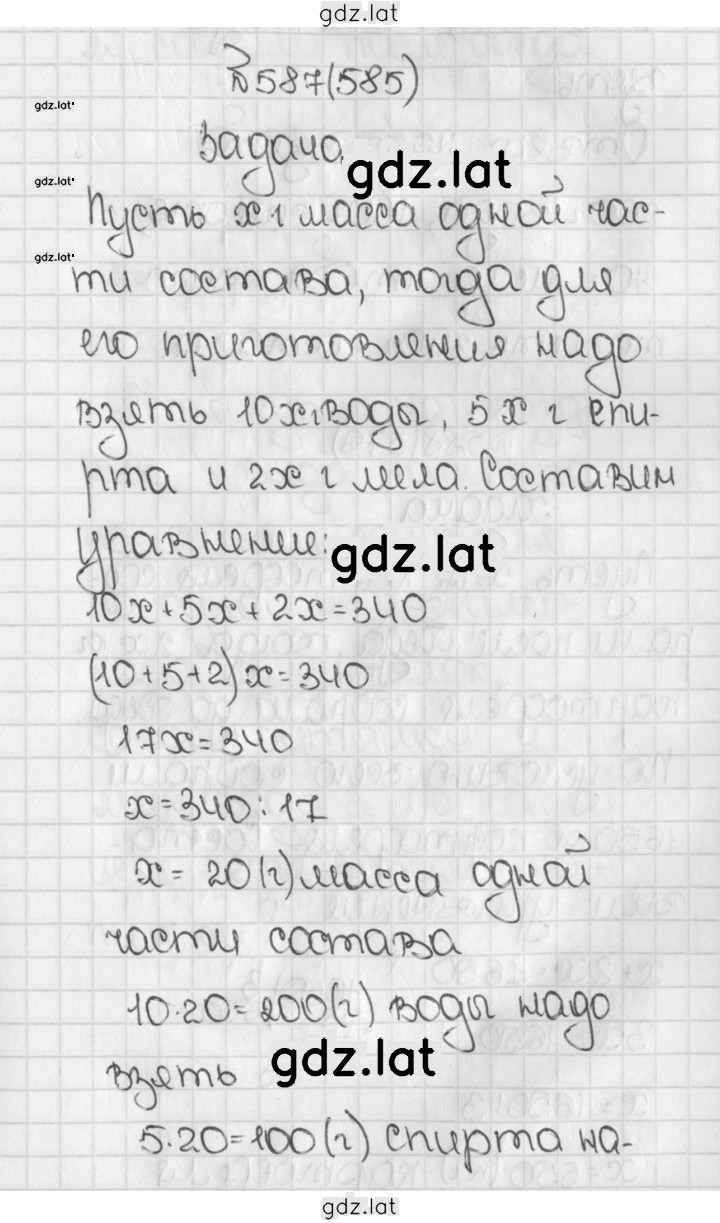 gdz.lat
№587(585)
gdz.lat
Задача.
gdz.lat
gdz.lat
Пусть x г масса одной час-
gdz.lat
ти состава, тогда для
его приготовления надо
взять 10x г воды, 5x г спи-
рта и 2x г мела. Составим
уравнение:
gdz.lat
10x+5x+2x=340
(10+5+2)x=340
17x=340
x=340:17
x=20(г) масса одной
части состава
10·20=200(г) воды надо
gdz.lat
взять
5·20=100(г) спирта на-
gdz.lat